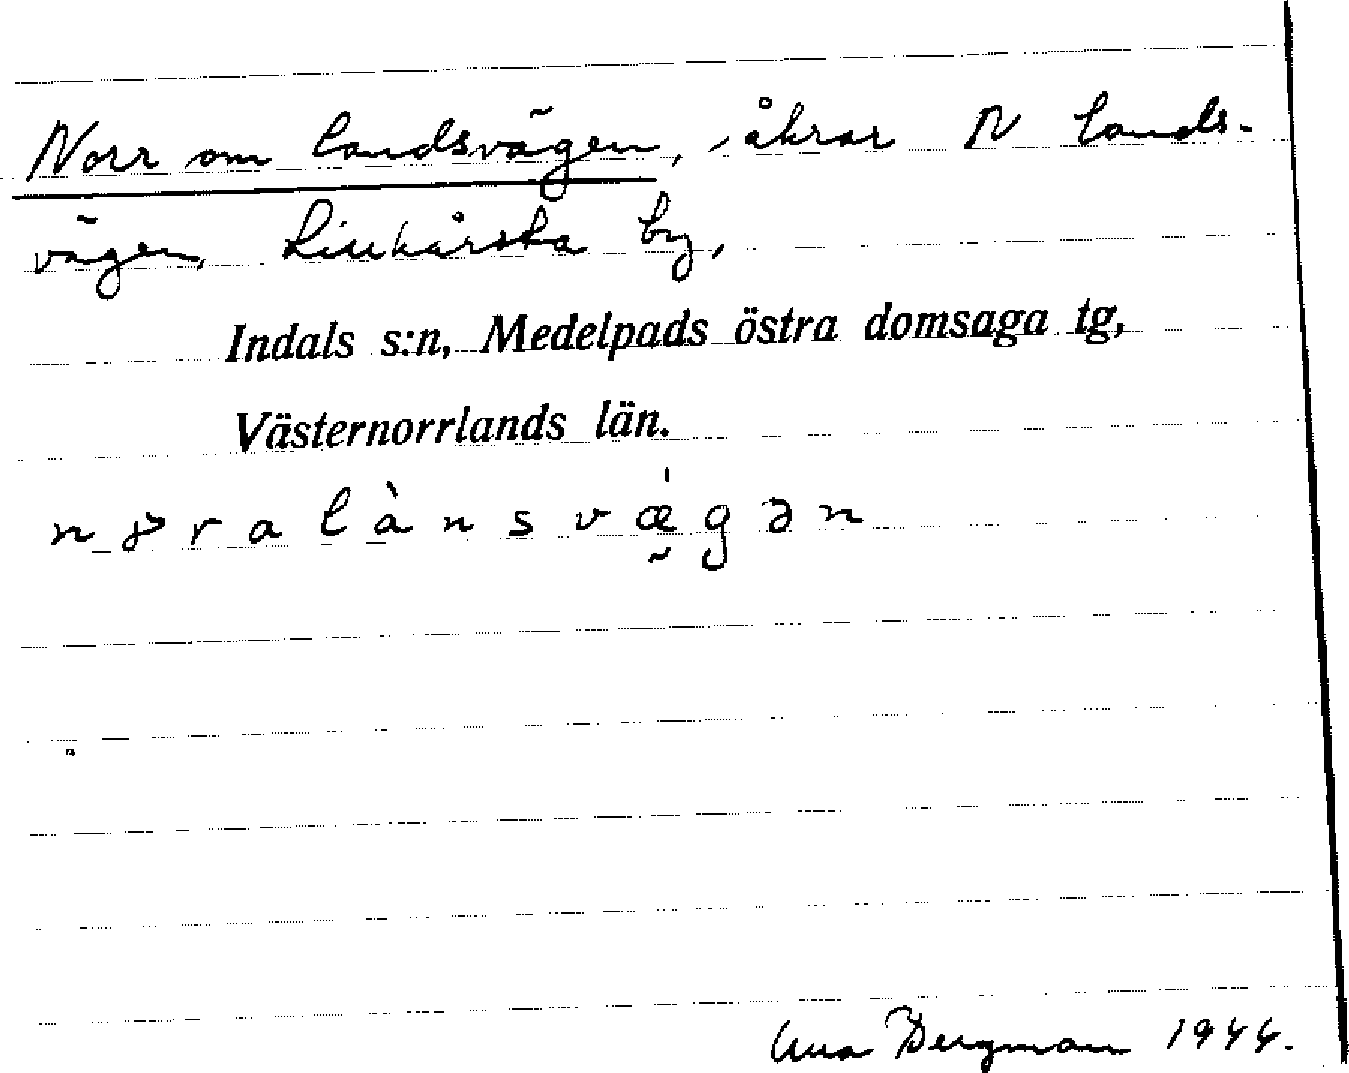 Norr om landsvägen, åkrar N lands-
vägen, Liukårska by,
Indals s:n, Medelpads östra domsaga tg,
Västernorrlands län.
ralànsvǽ̰gən
Bergman 1944.